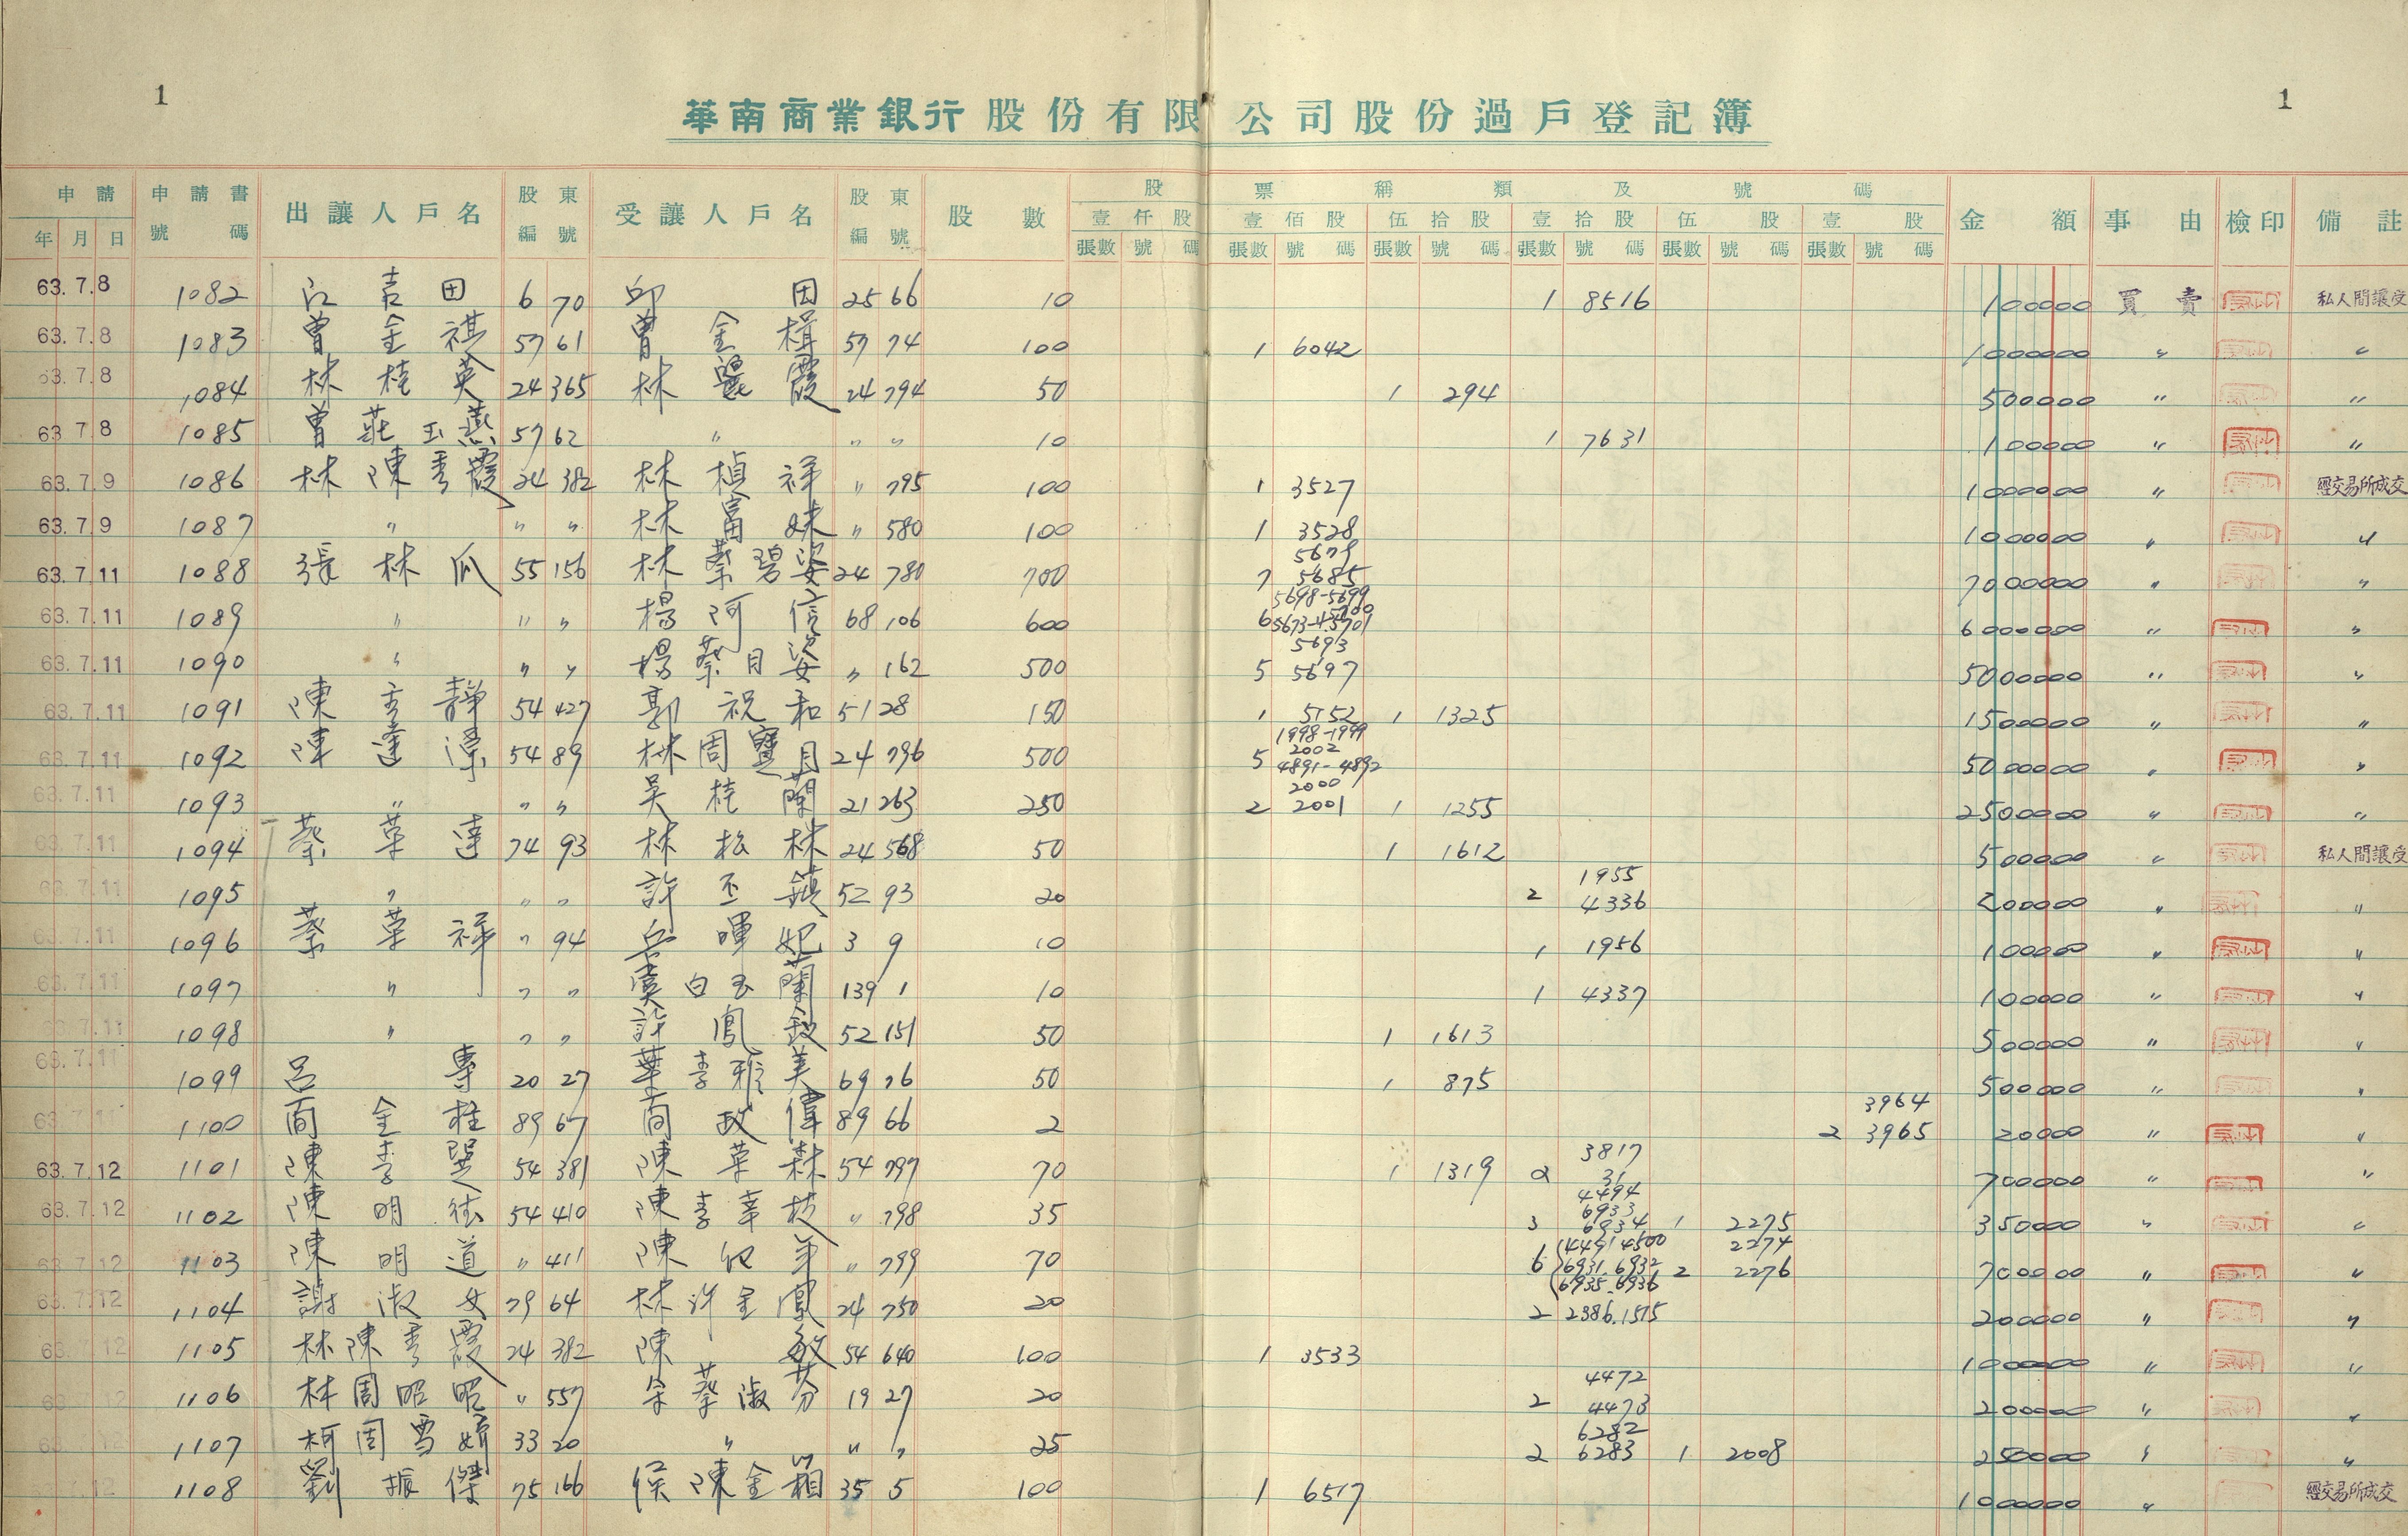 1 1
華南商業銀行股份有限公司股份過戶登記簿
申請 申請書 出讓人戶名 股東 受讓人戶名 股東 股數 股票種類及號碼 金額 事由 檢印 備註
年 月 日 號碼 編號 編號 壹仟股 壹佰股 伍拾股 壹拾股 伍股 壹股
張數 號碼 張數 號碼 張數 號碼 張數 號碼 張數 號碼 張數 號碼
63.7.8 1082 江吉田 6 70 邱田 25 66 10 1 8516 100000 買賣 私人間讓受
63.7.8 1083 曾金祺 57 61 曾金楫 57 74 100 1 6042 1000000 〃 〃
63.7.8 1084 林桂英 24 365 林霞 24 794 50 1 294 500000 〃 〃
63.7.8 1085 曾莊玉燕 57 62 〃 〃 〃 10 1 7631 100000 〃 〃
63.7.9 1086 林陳秀霞 24 382 林楨祥 〃 795 100 1 3527 1000000 〃 經交易所成交
63.7.9 1087 〃 〃 〃 林富妹 〃 580 100 1 3528 1000000 〃 〃
63.7.11 1088 張林瓜 55 156 林蔡碧姿 24 780 700 7 5679 5685 7000000 〃 〃
63.7.11 1089 〃 〃 〃 楊阿信 68 106 600 6 5698-5699 6000000 〃 〃
63.7.11 1090 〃 〃 〃 楊蔡月姿 〃 162 500 5 5693 5697 5000000 〃 〃
63.7.11 1091 陳秀靜 54 427 郭祝和 51 28 150 1 5152 1 1325 1500000 〃 〃
63.7.11 1092 陳達 54 89 林周寶月 24 796 500 5 1998-1999 2002 4891-4892 5000000 〃 〃
63.7.11 1093 〃 〃 〃 吳桂蘭 21 263 250 2 2000 2001 1 1255 2500000 〃 〃
63.7.11 1094 蔡革達 74 93 林松林 24 568 50 1 1612 500000 〃 私人間讓受
63.7.11 1095 〃 〃 〃 許丕鎮 52 93 20 2 1955 4336 200000 〃 〃
63.7.11 1096 蔡革祥 〃 94 岳暉妃 3 9 10 1 1956 100000 〃 〃
63.7.11 1097 〃 〃 〃 白玉蘭 139 1 10 1 4337 100000 〃 〃
63.7.11 1098 〃 〃 〃 許鳳釵 52 151 50 1 1613 500000 〃 〃
63.7.11 1099 呂專 20 27 葉李雅美 69 76 50 1 875 500000 〃 〃
63.7.11 1100 商金柱 89 67 商政偉 89 66 2 2 3964 3965 20000 〃 〃
63.7.12 1101 陳李巽 54 381 陳草森 54 797 70 1 1319 2 3817 31 700000 〃 〃
63.7.12 1102 陳明 54 410 陳李幸枝 〃 798 35 3 4494 6933 6934 1 2275 350000 〃 〃
63.7.12 1103 陳明道 〃 411 陳 〃 799 70 6 4491 4500 6931.6932 6935.6936 2 2274 2276 700000 〃 〃
63.7.12 1104 謝淑女 79 64 林許金鳳 24 750 20 2 2386.1515 200000 〃 〃
63.7.12 1105 林陳秀霞 24 382 陳敏 54 640 100 1 3533 1000000 〃 〃
63.7.12 1106 林周昭昭 〃 557 宋蔡淑芬 19 27 20 2 4472 4473 200000 〃 〃
63.7.12 1107 柯周雪嬌 33 20 〃 〃 〃 25 2 6282 6283 1 2008 250000 〃 〃
63.7.12 1108 劉振傑 75 166 侯陳金箱 35 5 100 1 6517 1000000 〃 經交易所成交